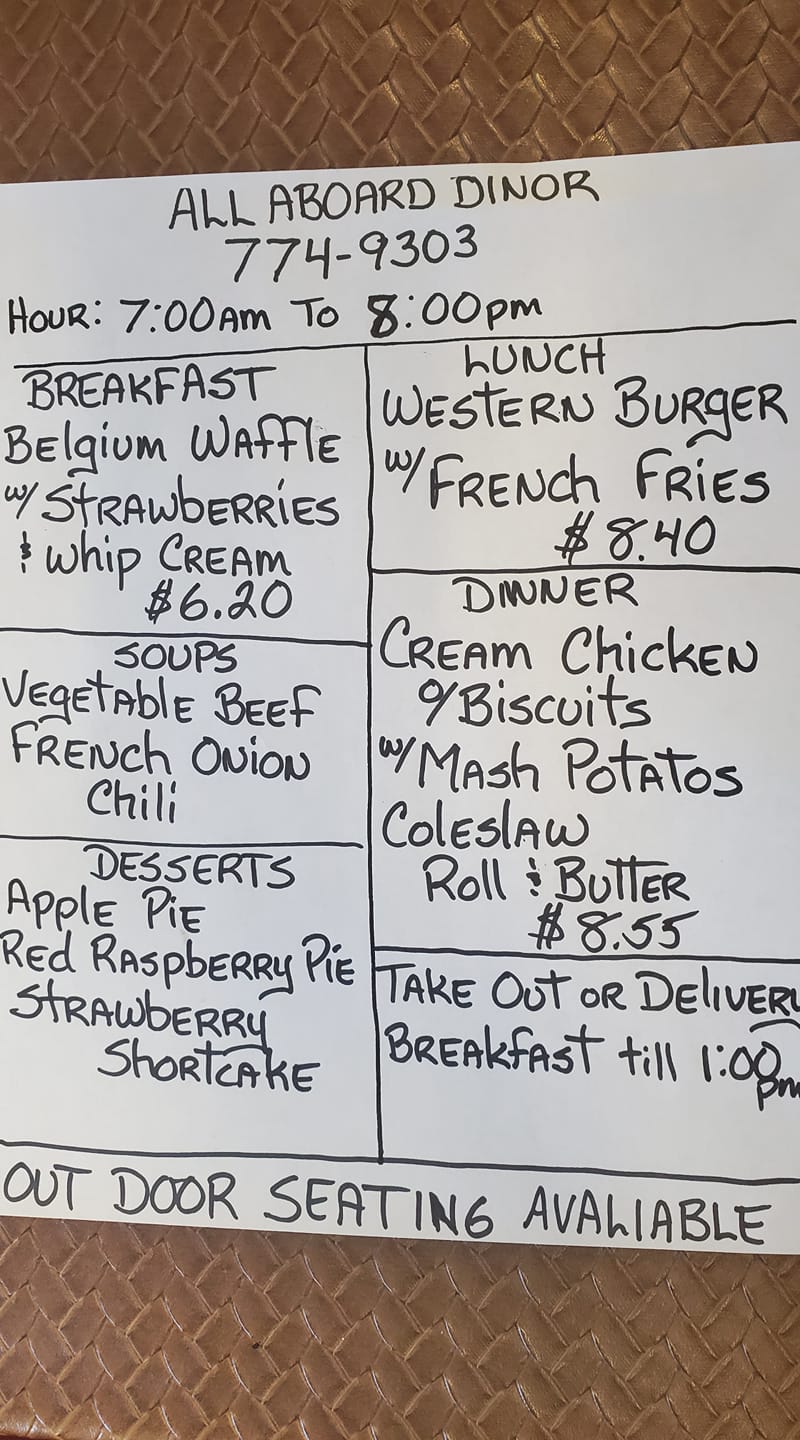 ALL ABOARD DINOR
774-9303
HOUR: 7:00AM TO 8:00PM
BREAKFAST
BElgium WAffIE
w/ STRAWbERRiES
& Whip CREAM
$6.20
SOUPS
VEgETAblE BEEf
FRENch ONiON
Chili
DESSERTS
ApplE PiE
REd RASpbERRy PiE
STRAWbERRy
ShORTCAKE
LUNCH
WESTERN BURgER
w/ FRENch FRiES
$8.40
DINNER
CREAM ChicKEN
o/Biscuits
w/ MASh POTATOS
COlESlAW
Roll & BUTTER
$8.55
TAKE OUT OR DEliVERy
BREAKfAST till 1:00
pm
OUT DOOR SEATING AVALIABLE